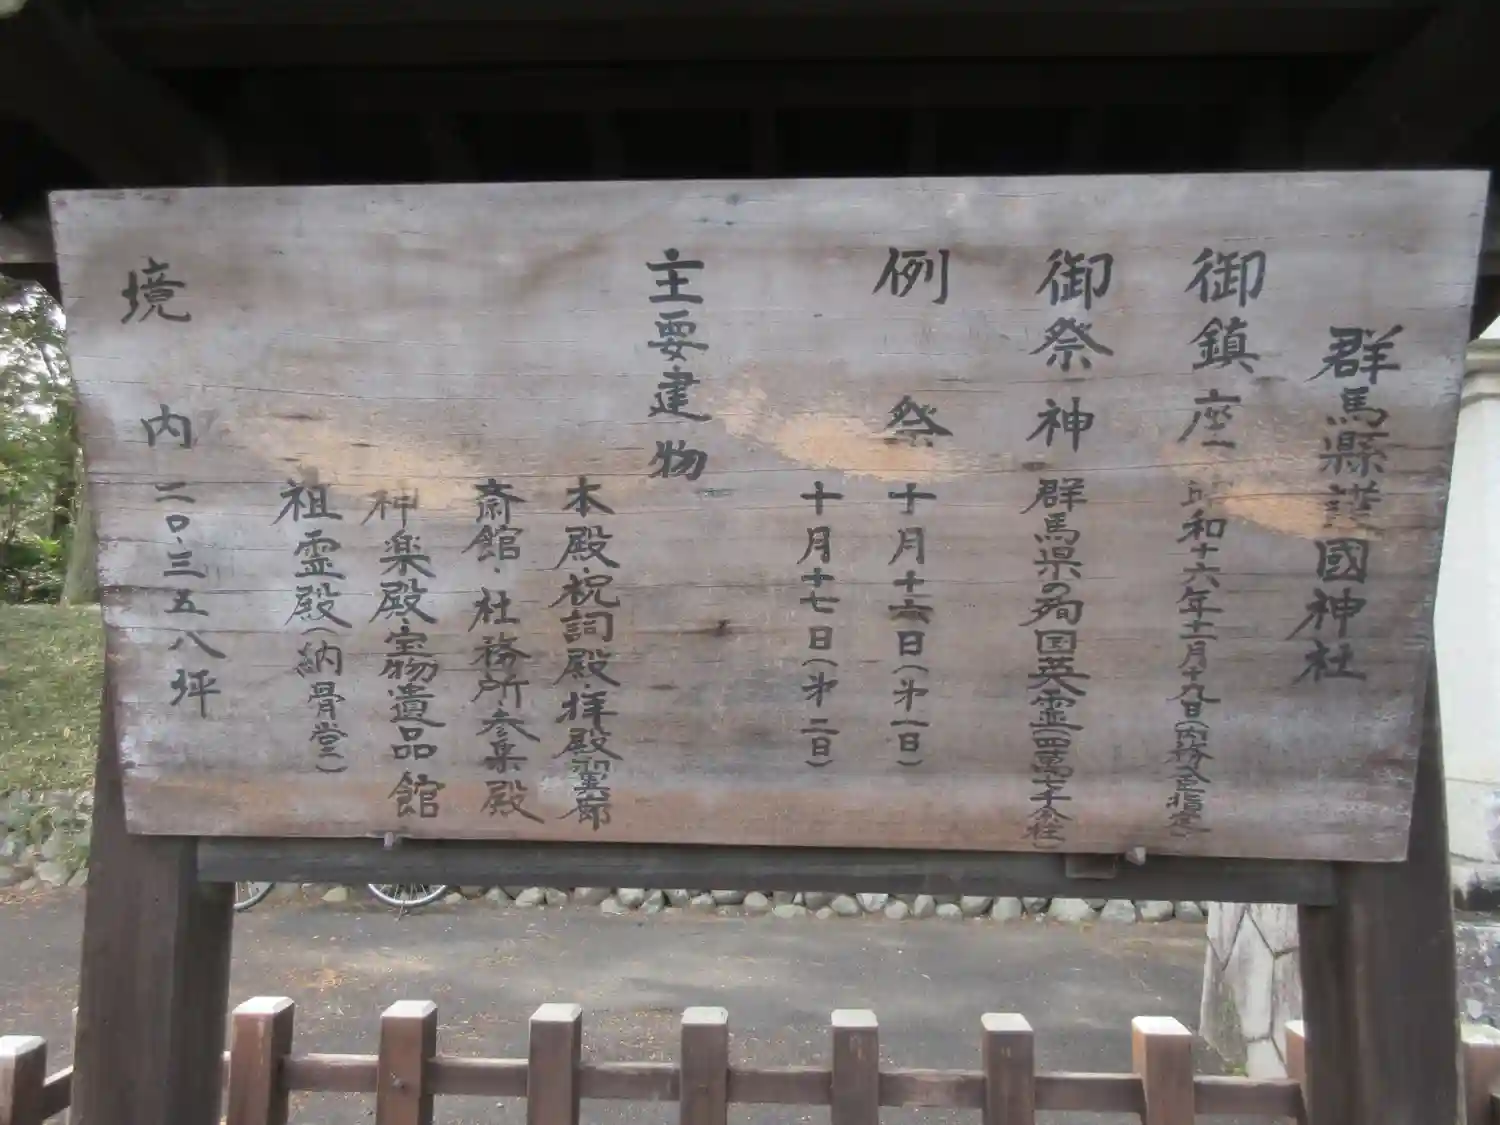 群馬縣護國神社
御鎮座 昭和十六年十一月十九日(内務大臣指定)
御祭神 群馬県の殉国英霊(四萬七千余柱)
例祭 十月十六日(才一日)
十月十七日(才二日)
主要建物
本殿・祝詞殿・拝殿翼廊
斎館・社務所・参集殿
神楽殿・宝物遺品館
祖霊殿(納骨堂)
境内 二〇・三五八坪